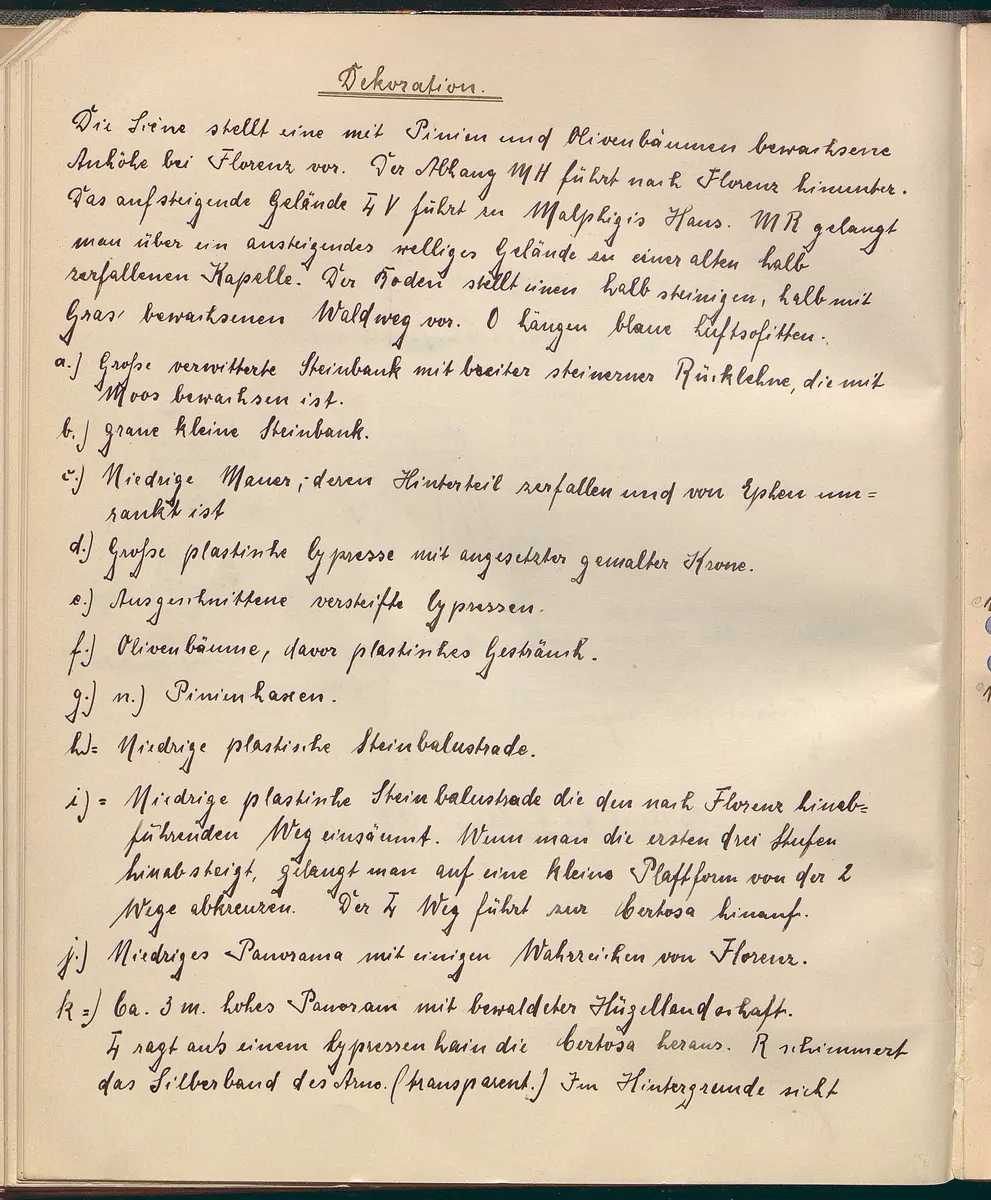 Dekoration.
Die Scene stellt eine mit Pinien und Olivenbäumen bewachsene
Anhöhe bei Florenz vor. Der Abhang MH führt nach Florenz hinunter.
Das aufsteigende Gelände L V führt zu Malphigis Haus. MR gelangt
man über ein ansteigendes welliges Gelände zu einer alten halb
zerfallenen Kapelle. Der Boden stellt einen halb steinigen, halb mit
Gras bewachsenen Waldweg vor. O hängen blaue Luftsofitten.
a.) Große verwitterte Steinbank mit breiter steinerner Rücklehne, die mit
Moos bewachsen ist.
b.) graue kleine Steinbank.
c.) Niedrige Mauer, deren Hinterteil zerfallen und von Epheu um=
rankt ist
d.) Große plastische Cypresse mit angesetzter gemalter Krone.
e.) Ausgeschnittene versteifte Cypressen.
f.) Olivenbäume, davor plastisches Gesträuch.
g.) n.) Pinienhaxen.
h)= Niedrige plastische Steinbalustrade.
i) = Niedrige plastische Steinbalustrade die den nach Florenz hinab=
führenden Weg einsäumt. Wenn man die ersten drei Stufen
hinabsteigt, gelangt man auf eine kleine Plattform von der 2
Wege abkreuzen. Der L Weg führt zur Certosa hinauf.
j.) Niedriges Panorama mit einigen Wahrzeichen von Florenz.
k =) Ca. 3 m. hohes Panoram mit bewaldeter Hügellandschaft.
L ragt aus einem Cypressenhain die Certosa heraus. R schimmert
das Silberband des Arno. (transparent.) Im Hintergrunde sieht